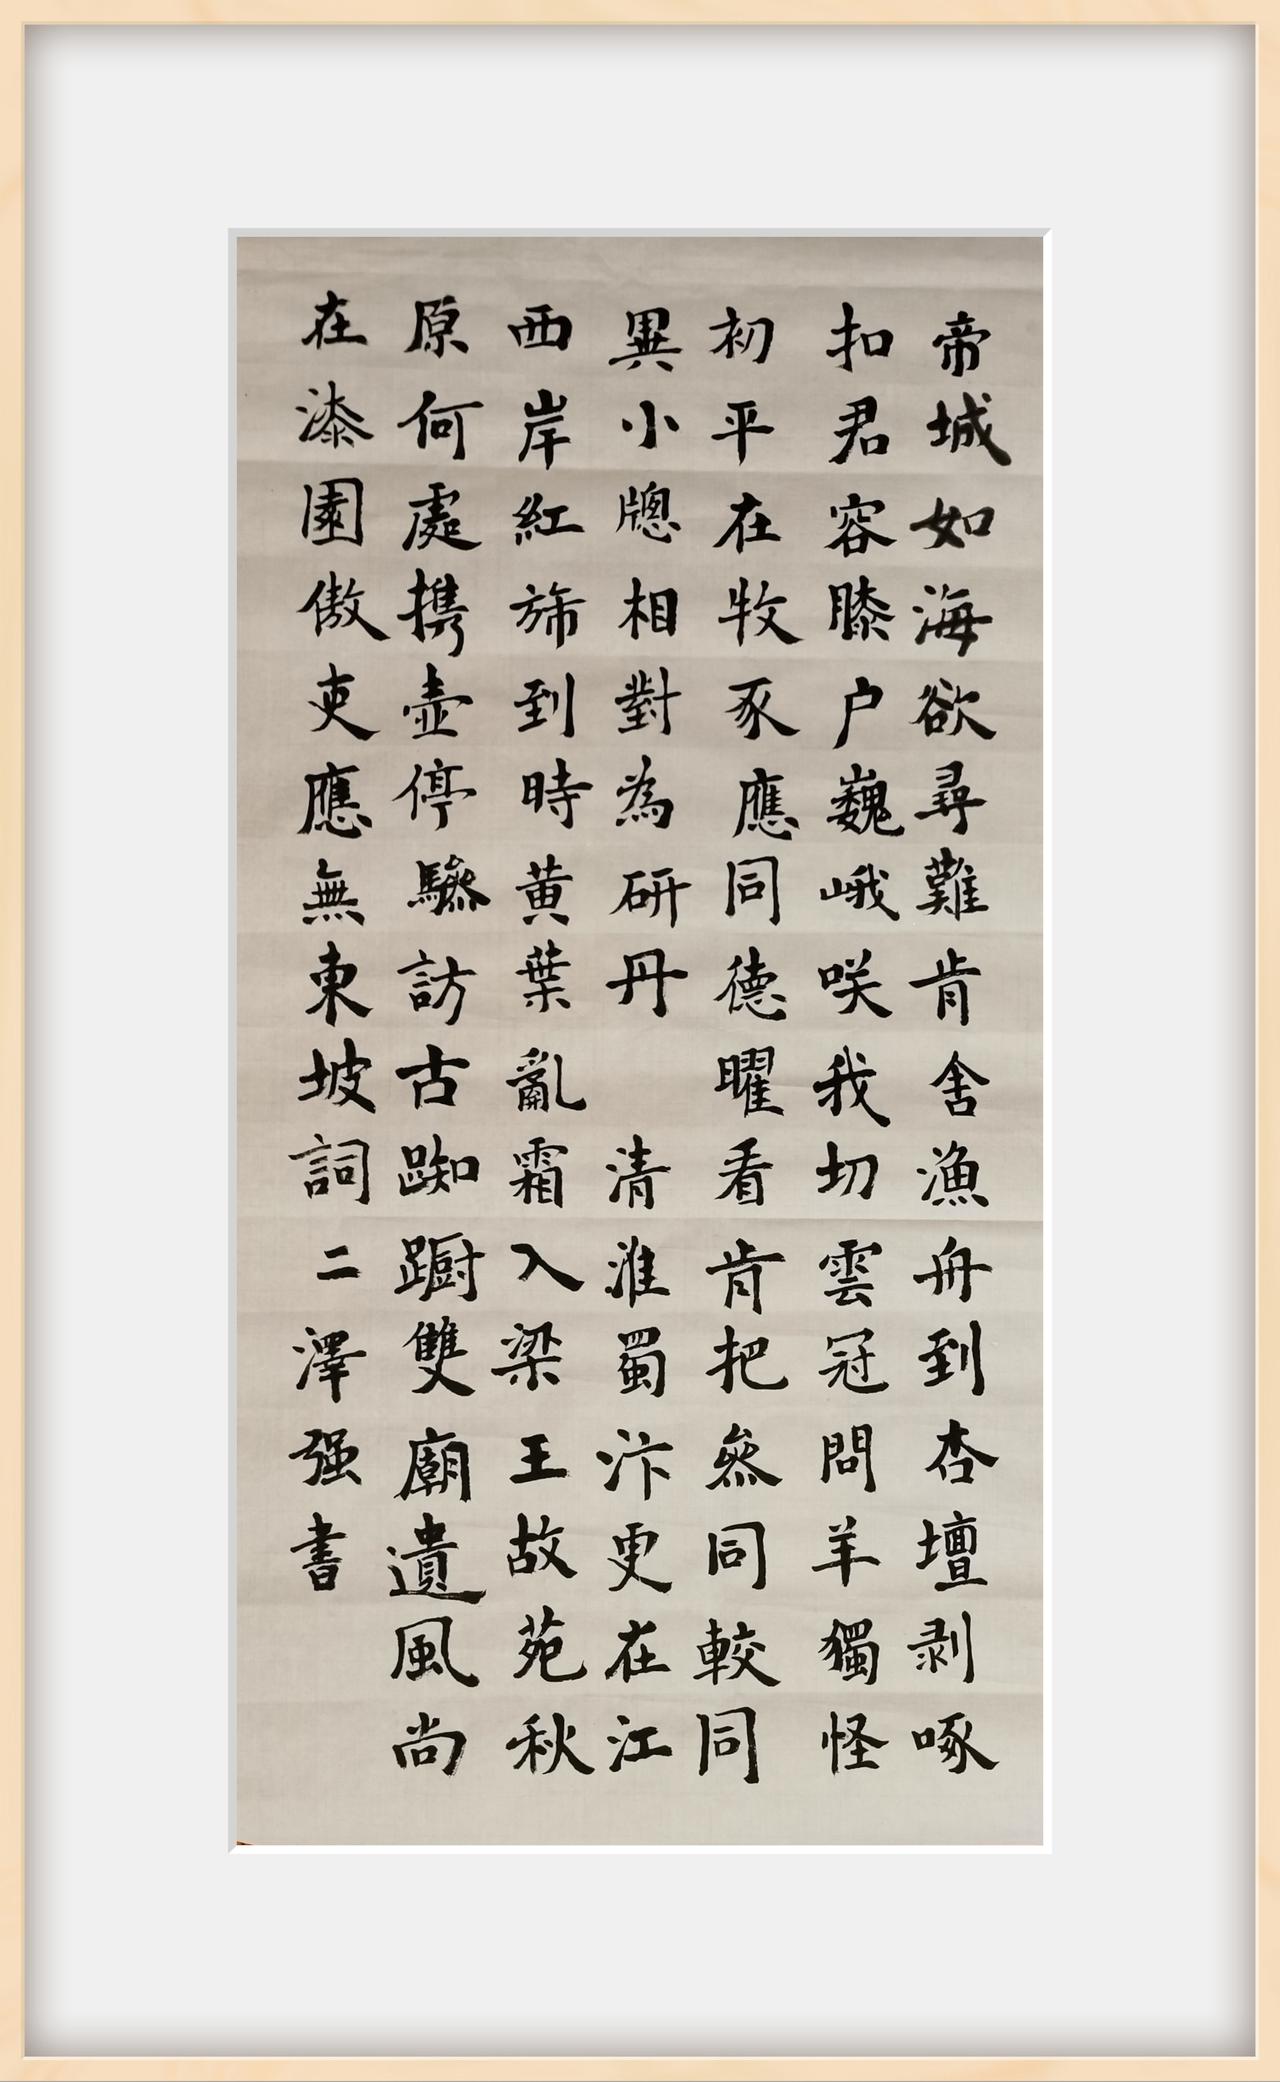 帝城如海欲尋難肯舍漁舟到杏壇剥啄
扣君容膝户巍峨咲我切雲冠問羊獨怪
初平在牧豕應同德曜看肯把叅同較同
異小牕相對為研丹 清淮蜀汴更在江
西岸紅斾到時黄葉亂霜入梁王故苑秋
原何處携壺停驂訪古踟蹰雙廟遺風尚
在漆園傲吏應無東坡詞二澤强書